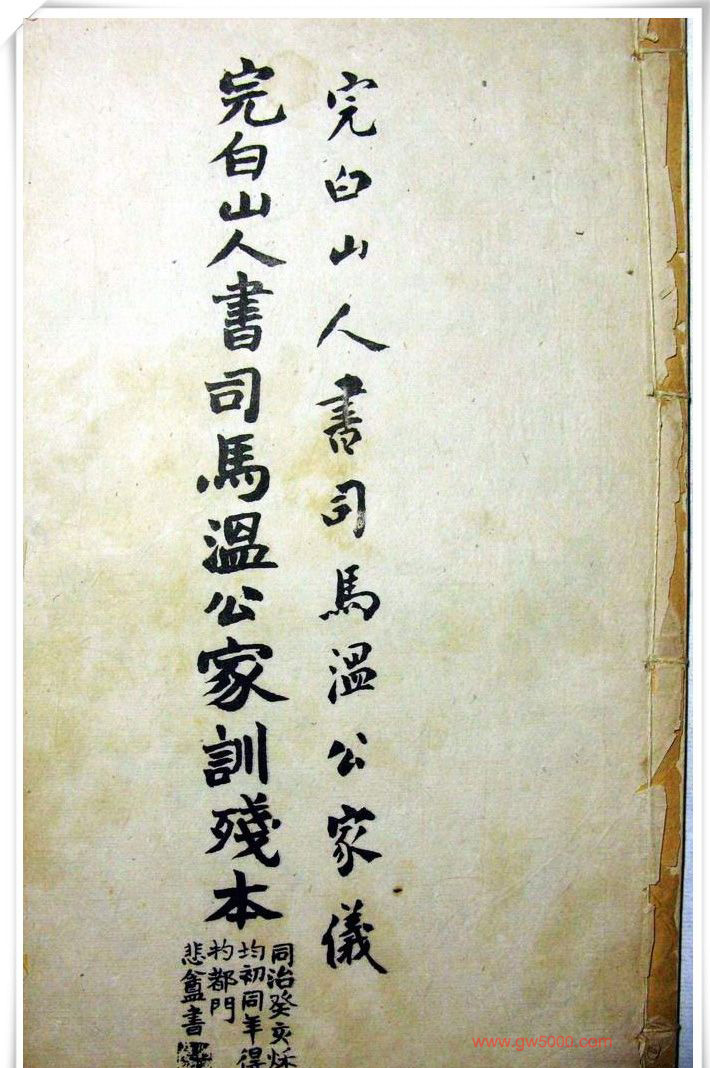 完白山人書司馬溫公家儀
完白山人書司馬溫公家訓殘本
同治癸亥秌
均初同年得
於都門
悲盦書
www.gw5000.com